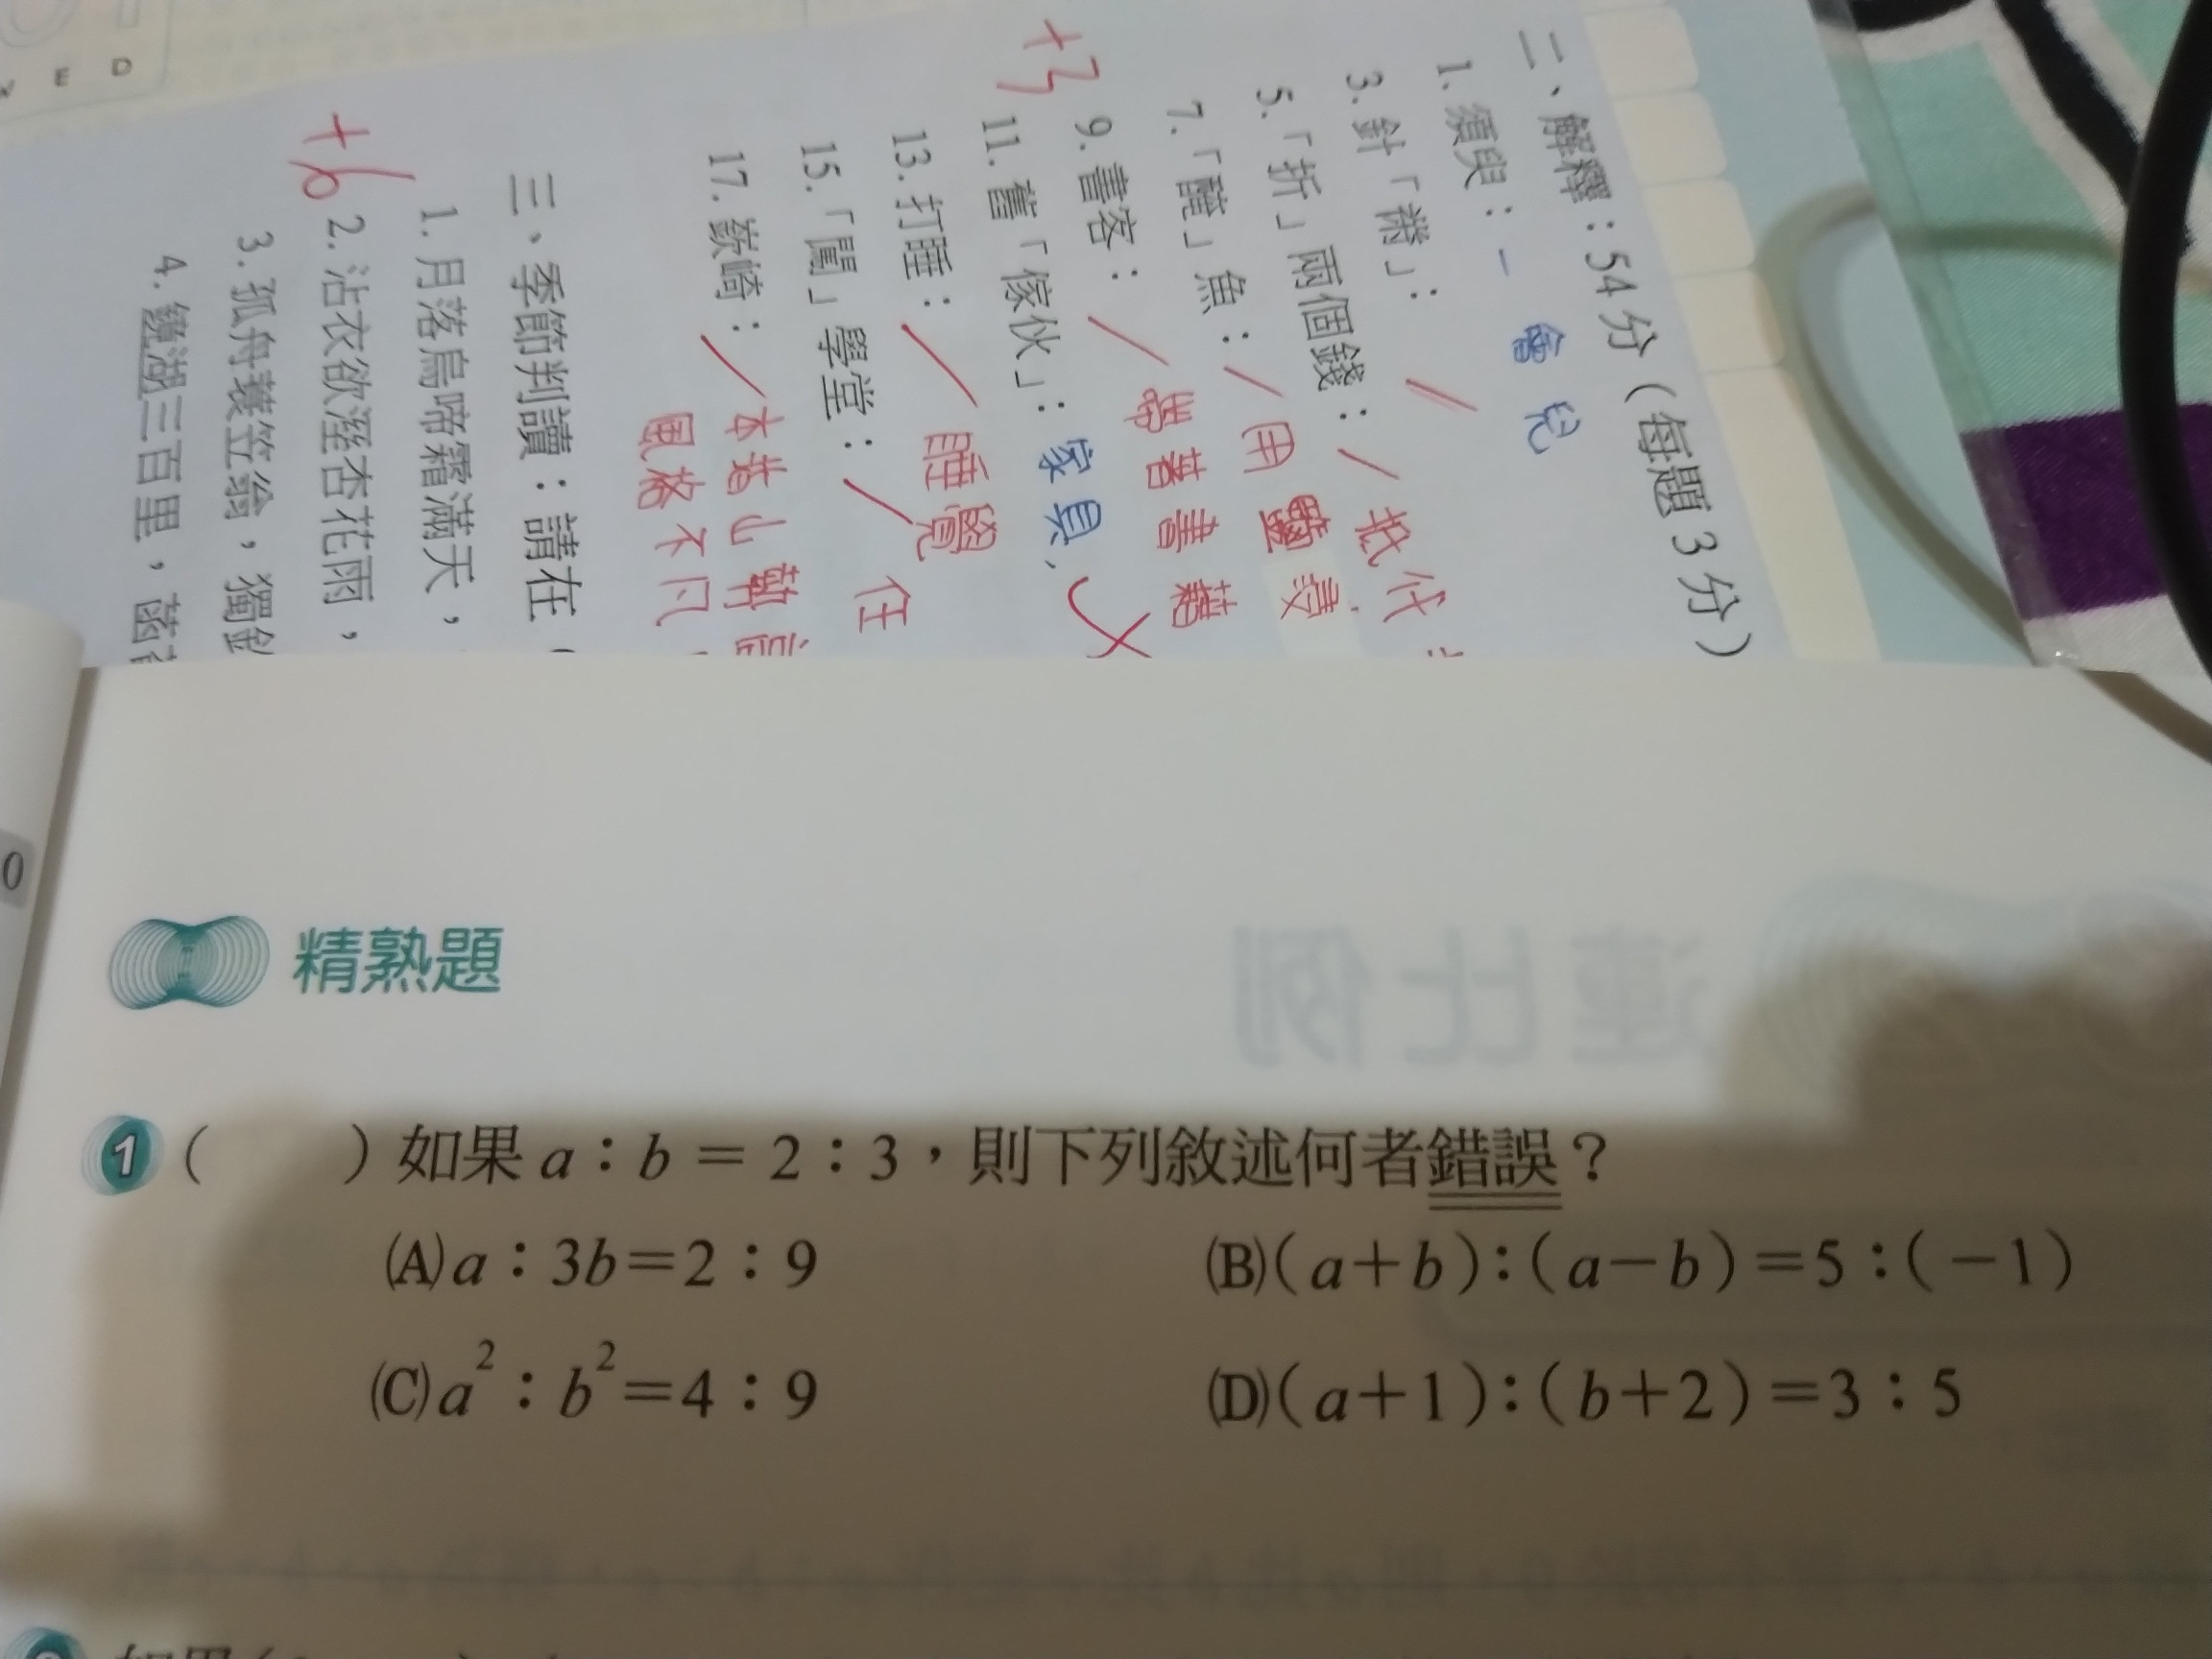 E D
二、解釋：54分（每題3分）
1. 須臾：一會兒
3. 針「黹」：
5.「折」兩個錢：抵代
7.「醃」魚：用鹽浸
9. 書客：帶著書籍
11. 舊「傢伙」：家具
13. 打睡：睡覺
15.「鬧」學堂：任
17. 嶔崎：本指山勢高
風格不凡
+3
三、季節判讀：請在（
1. 月落烏啼霜滿天，
2. 沾衣欲溼杏花雨，
3. 孤舟蓑笠翁，獨釣
4. 鏡湖三百里，菡萏
+6
0
精熟題
1（　　）如果 a：b = 2：3，則下列敘述何者錯誤？
(A) a：3b=2：9
(B)(a+b)：(a-b)=5：(-1)
(C) a²：b²=4：9
(D)(a+1)：(b+2)=3：5
如果(